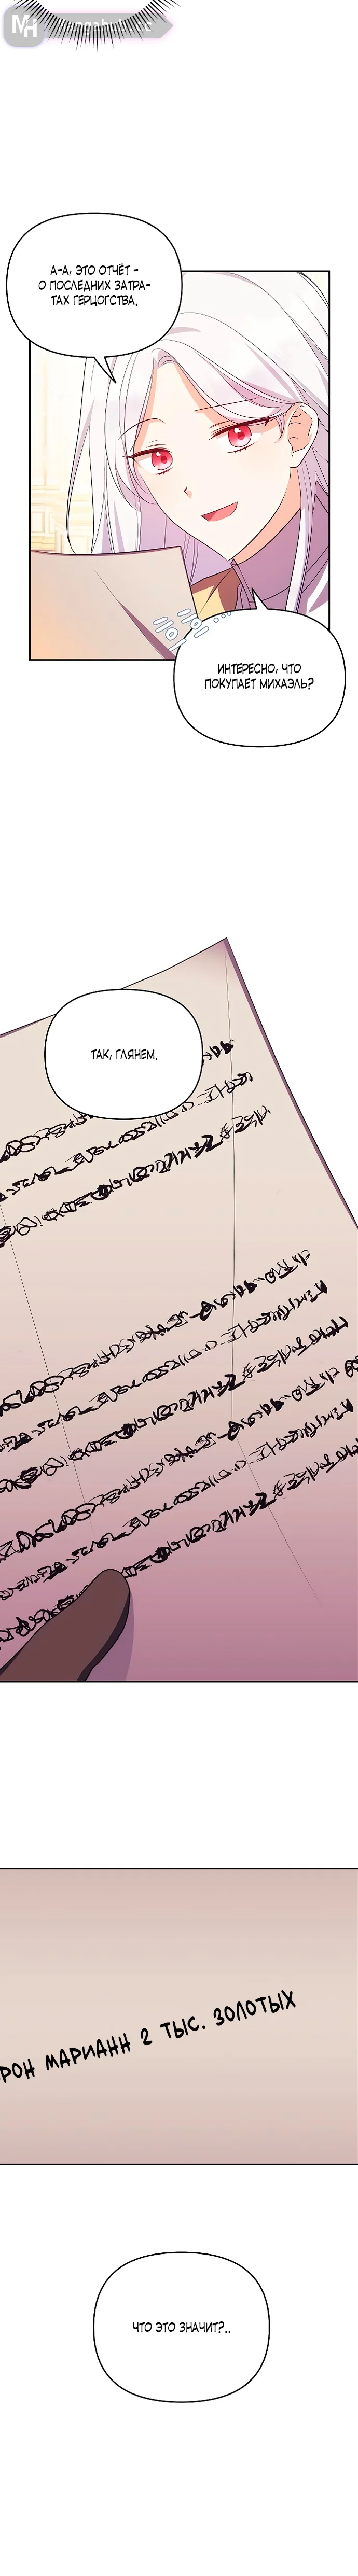 MH
А-А, ЭТО ОТЧЁТ -
О ПОСЛЕДНИХ ЗАТРА-
ТАХ ГЕРЦОГСТВА.
ИНТЕРЕСНО, ЧТО
ПОКУПАЕТ МИХАЭЛЬ?
ТАК, ГЛЯНЕМ.
РОН МАРИАНН 2 ТЫС. ЗОЛОТЫХ
ЧТО ЭТО ЗНАЧИТ?..